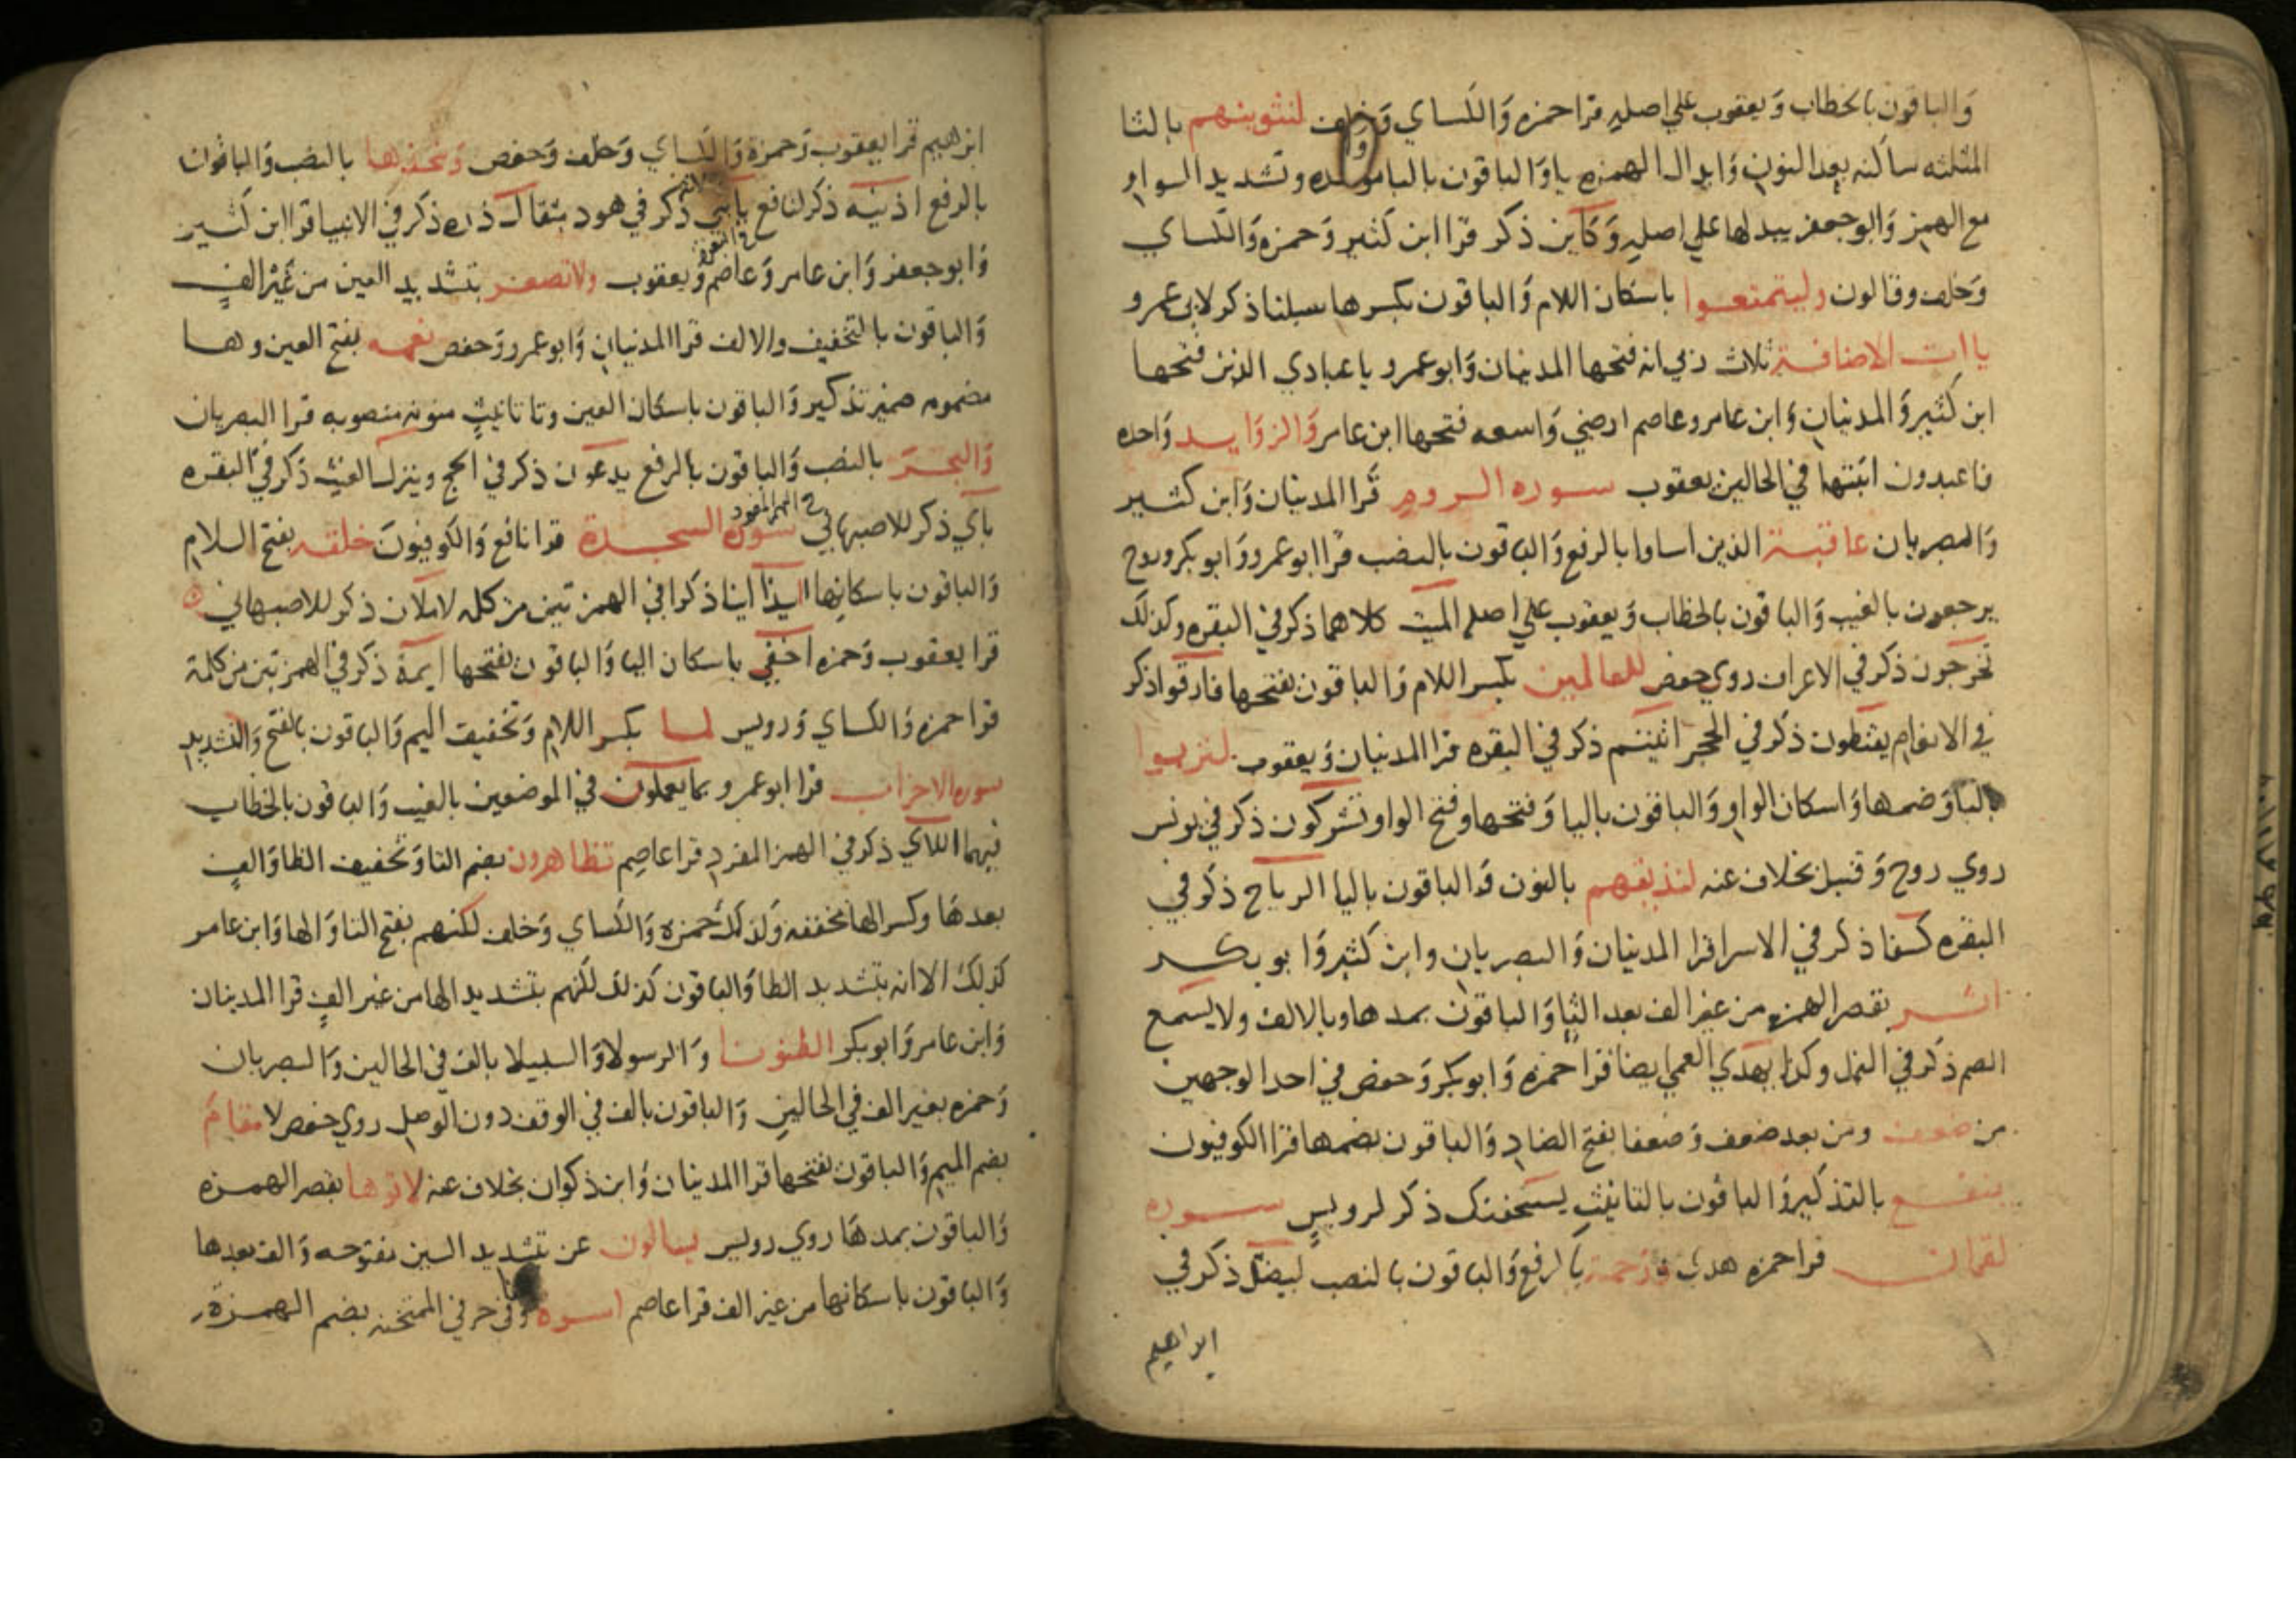 والباقون بالخطاب ويعقوب علي اصله قرا حمزه والكساي وخلف لنثوينهم بالثا
المثلثه ساكنه بعد النون وابدال الهمزه يا والباقون بالبا موحده وتشديد الواو
مع الهمز وابو جعفر يبدلها علي اصله وكاين ذكر قرا ابن كثير وحمزه والكساي
وخلف وقالون وليتمتعوا باسكان اللام والباقون بكسرها سبلنا ذكر لابي عمرو
ياات الاضافة ثلاث ربي انه فتحها المدنيان وابو عمرو يا عبادي الذين فتحها
ابن كثير والمدنيان وابن عامر وعاصم ارضي واسعه فتحها ابن عامر والزوايد واحده
فاعبدون اثبتها في الحالين يعقوب سوره الروم قرا المدنيان وابن كثير
والبصريان عاقبة الذين اساوا بالرفع والباقون بالنصب قرا ابو عمرو وابو بكر وروح
يرجعون بالغيب والباقون بالخطاب ويعقوب علي اصله الميت كلاهما ذكر في البقره وكذلك
تخرجون ذكر في الاعراف روي حفص للعالمين بكسر اللام والباقون بفتحها فارقوا ذكر
في الانعام يقنطون ذكر في الحجر اتيتم ذكر في البقره قرا المدنيان ويعقوب لتربوا
بالتا وضمها واسكان الواو والباقون باليا وفتحها وفتح الواو تشركون ذكر في يونس
روي روح وقنبل بخلاف عنه لنذيقهم بالنون والباقون باليا الرياح ذكر في
البقره كسفا ذكر في الاسرا قرا المدنيان والبصريان وابن كثير وابو بكر
اثر بقصر الهمزه من غير الف بعد الثا والباقون بمدها وبالالف ولا يسمع
الصم ذكر في النمل وكذا بهدي العمي ايضا قرا حمزه وابو بكر وحفص في احد الوجهين
من ضعف ومن بعد ضعف وضعفا بفتح الضاد والباقون بضمها قرا الكوفيون
ينفع بالتذكير والباقون بالتانيث يستخفنك ذكر لرويس سوره
لقمان قرا حمزه هدى ورحمة بالرفع والباقون بالنصب ليضل ذكر في
ابراهيم
ابراهيم قرا يعقوب وحمزة والكساي وخلف وحفص ويتخذها بالنصب والباقون
بالرفع اذنيه ذكر لنافع يابني ذكر في هود مثقال ذره ذكر في الانبيا قرا ابن كثير
وابو جعفر وابن عامر وعاصم ويعقوب ولا تصعر بتشديد العين من غير الف
والباقون بالتخفيف والالف قرا المدنيان وابو عمرو وحفص نعمه بفتح العين وها
مضمومه ضمير تذكير والباقون باسكان العين وتا تانيث منونه منصوبه قرا البصريان
والبحر بالنصب والباقون بالرفع يدعون ذكر في الحج وينزل الغيث ذكر في البقره
باي ذكر للاصبهاني في الهمز المفرد سورة السجدة قرا نافع والكوفيون خلقه بفتح اللام
والباقون باسكانها ايذا اينا ذكرا في الهمزتين من كلمه لاملان ذكر للاصبهاني
قرا يعقوب وحمزه اخفي باسكان اليا والباقون بفتحها ايمة ذكر في الهمزتين من كلمة
قرا حمزه والكساي ورويس لما بكسر اللام وتخفيف الميم والباقون بالفتح والتشديد
سوره الاحزاب قرا ابو عمرو بما يعملون في الموضعين بالغيب والباقون بالخطاب
فيهما اللاي ذكر في الهمز المفرد قرا عاصم تظاهرون بضم التا وتخفيف الظا والف
بعدها وكسر الها مخففه وكذلك حمزه والكساي وخلف لكنهم بفتح التا والها وابن عامر
كذلك الا انه بتشديد الظا والباقون كذلك لكنهم بتشديد الها من غير الف قرا المدنيان
وابن عامر وابو بكر الظنونا والرسولا والسبيلا بالف في الحالين والبصريان
وحمزه بغير الف في الحالين والباقون بالف في الوقف دون الوصل روي حفص لا مقام
بضم الميم والباقون بفتحها قرا المدنيان وابن ذكوان بخلاف عنه لاتوها بقصر الهمزه
والباقون بمدها روي رويس يسالون عن بتشديد السين مفتوحه والف بعدها
والباقون باسكانها من غير الف قرا عاصم اسوة وفي حرفي الممتحنه بضم الهمزة